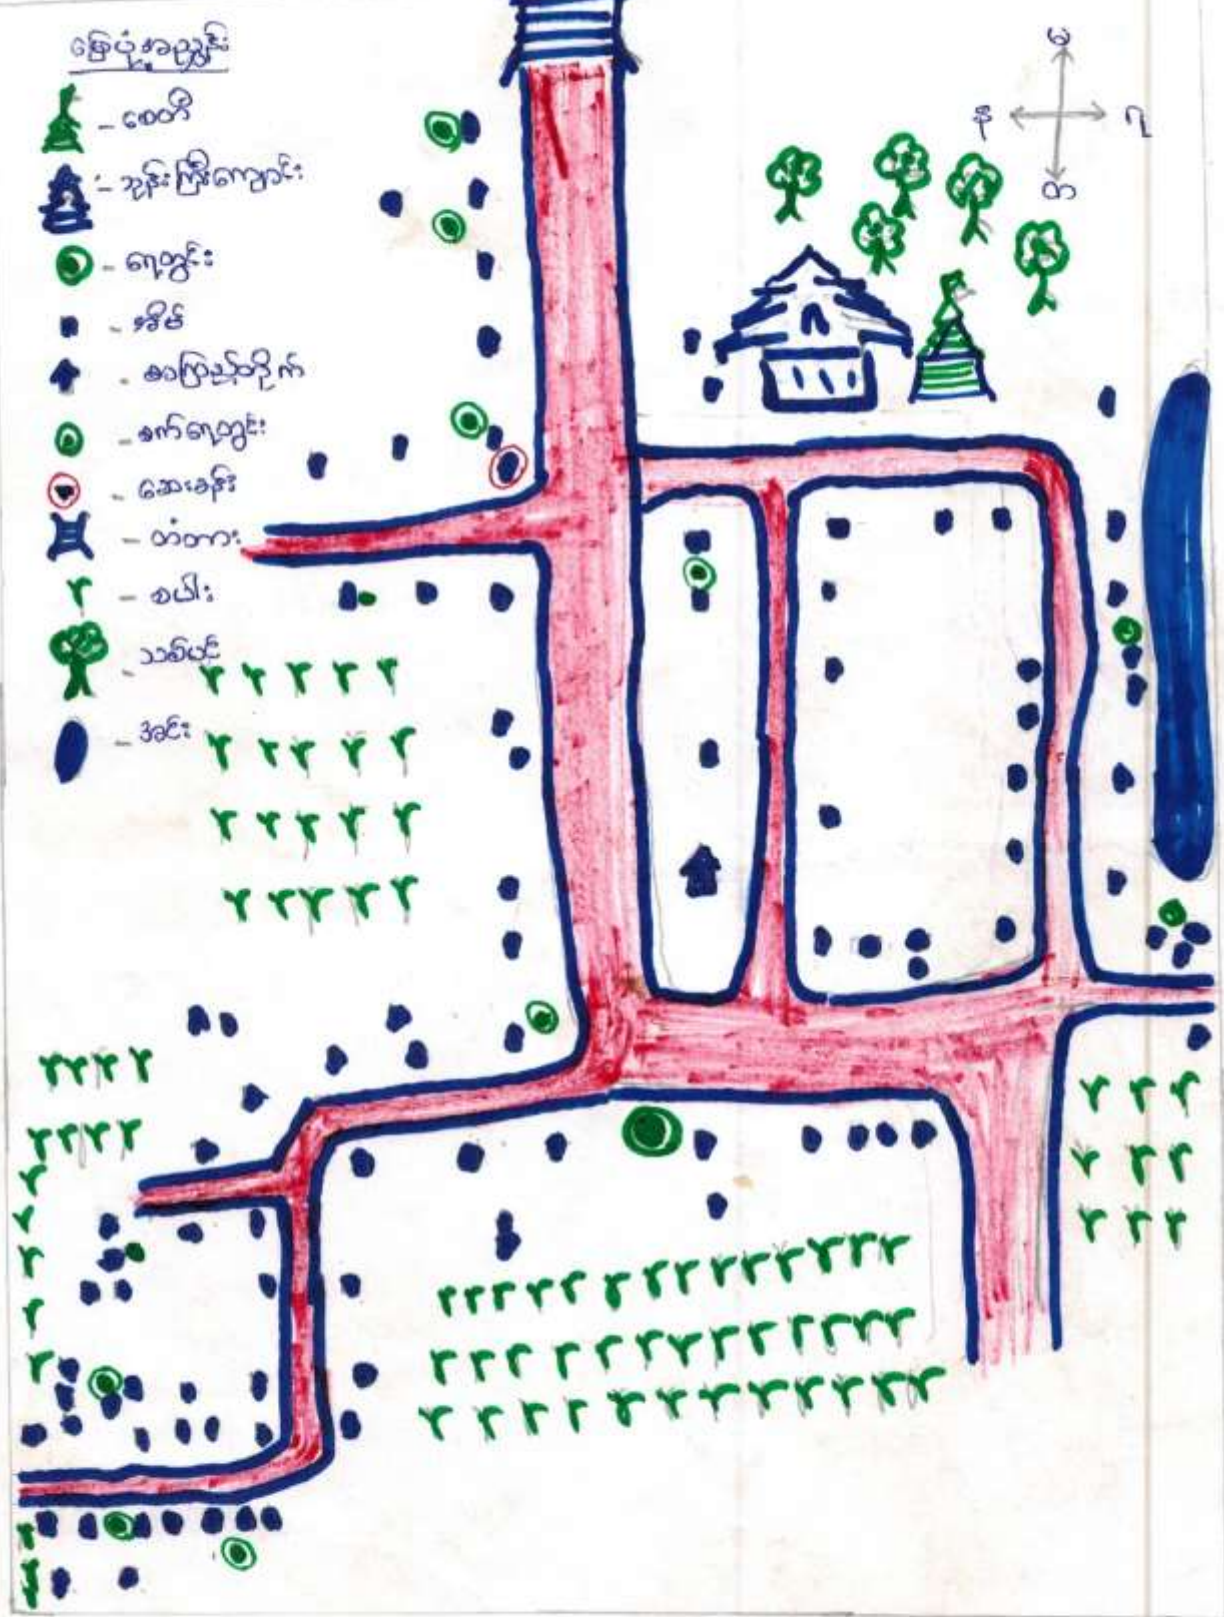 မြေပုံအညွှန်း
- စေတီ
- ဘုန်းကြီးကျောင်း
- ရေတွင်း
- အိမ်
- စာကြည့်တိုက်
- စက်ရေတွင်း
- ဆေးခန်း
- တံတား
- စပါး
- သစ်ပင်
- အင်း